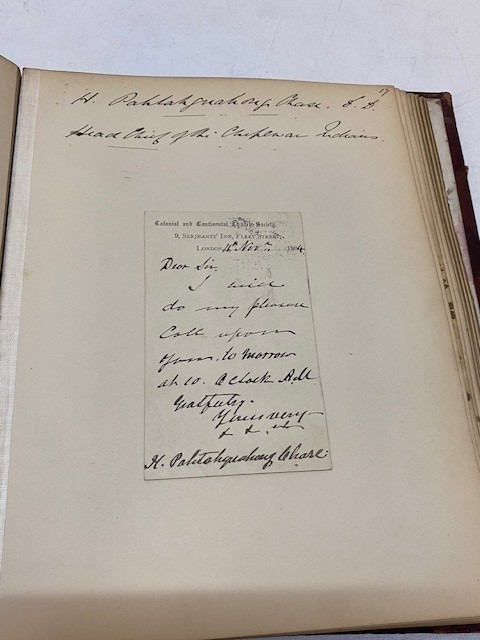 17
H. Pahtahquahong Chase. D. D.
Head Chief of the Chipewa Indians.
Colonial and Continental Church Society,
9, Serjeants' Inn, Fleet Street,
London, 14th Novr. 188
Dear Sir.
I will
do my pleasure
Call upon
you. to morrow
at 10. O'Clock A.M.
Yours very
& & &
H. Pahtahquahong Chase.